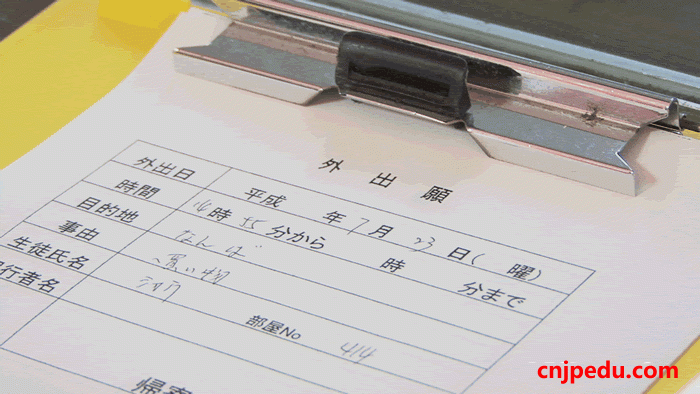 外出願
外出日 平成 年 7月 23日( 曜)
時間 14時55分から 時 分まで
目的地 なんば
事由 買い物
生徒氏名
行者名 部屋No 414
帰寮
cnjpedu.com